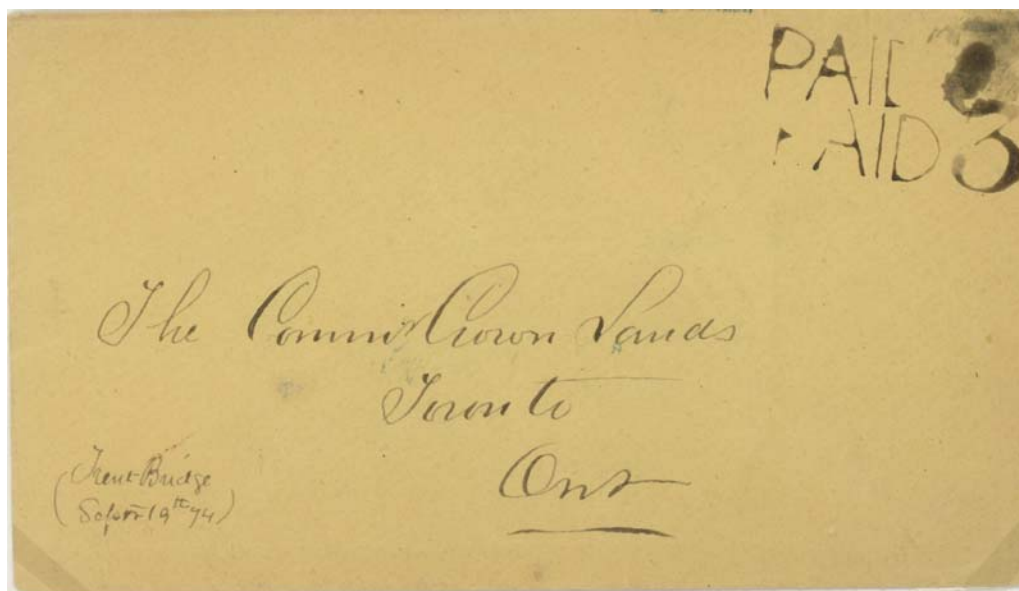 PAID
PAID 3
The Commr Crown Lands
Toronto
Ont
(Trent Bridge
Septr 19th 74)